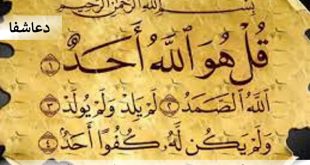 دعاشفا
بِسْمِ اللَّهِ الرَّحْمَنِ الرَّحِيمِ
قُلْ هُوَ اللَّهُ أَحَدٌ ١
اللَّهُ الصَّمَدُ ٢ لَمْ يَلِدْ وَلَمْ يُولَدْ ٣
وَلَمْ يَكُن لَّهُ كُفُوًا أَحَدٌ ٤